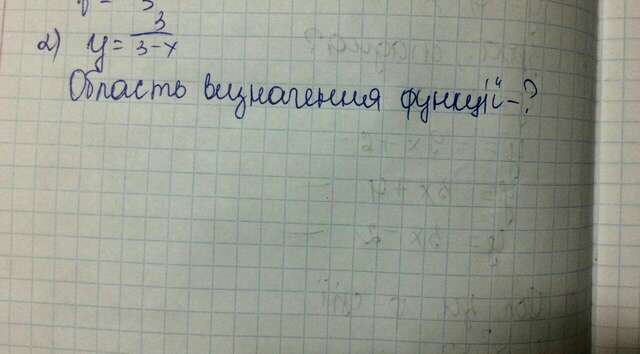 2) y = 3/(3-x)
Область визначення функції - ?